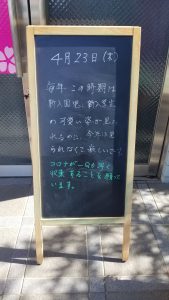 4月23日(木)
毎年 この時期は
新入園児、新入学生
の可愛い姿が見
られるのに、今年は見
られなくて寂しいです。
コロナが一日も早く
収束することを願って
います。